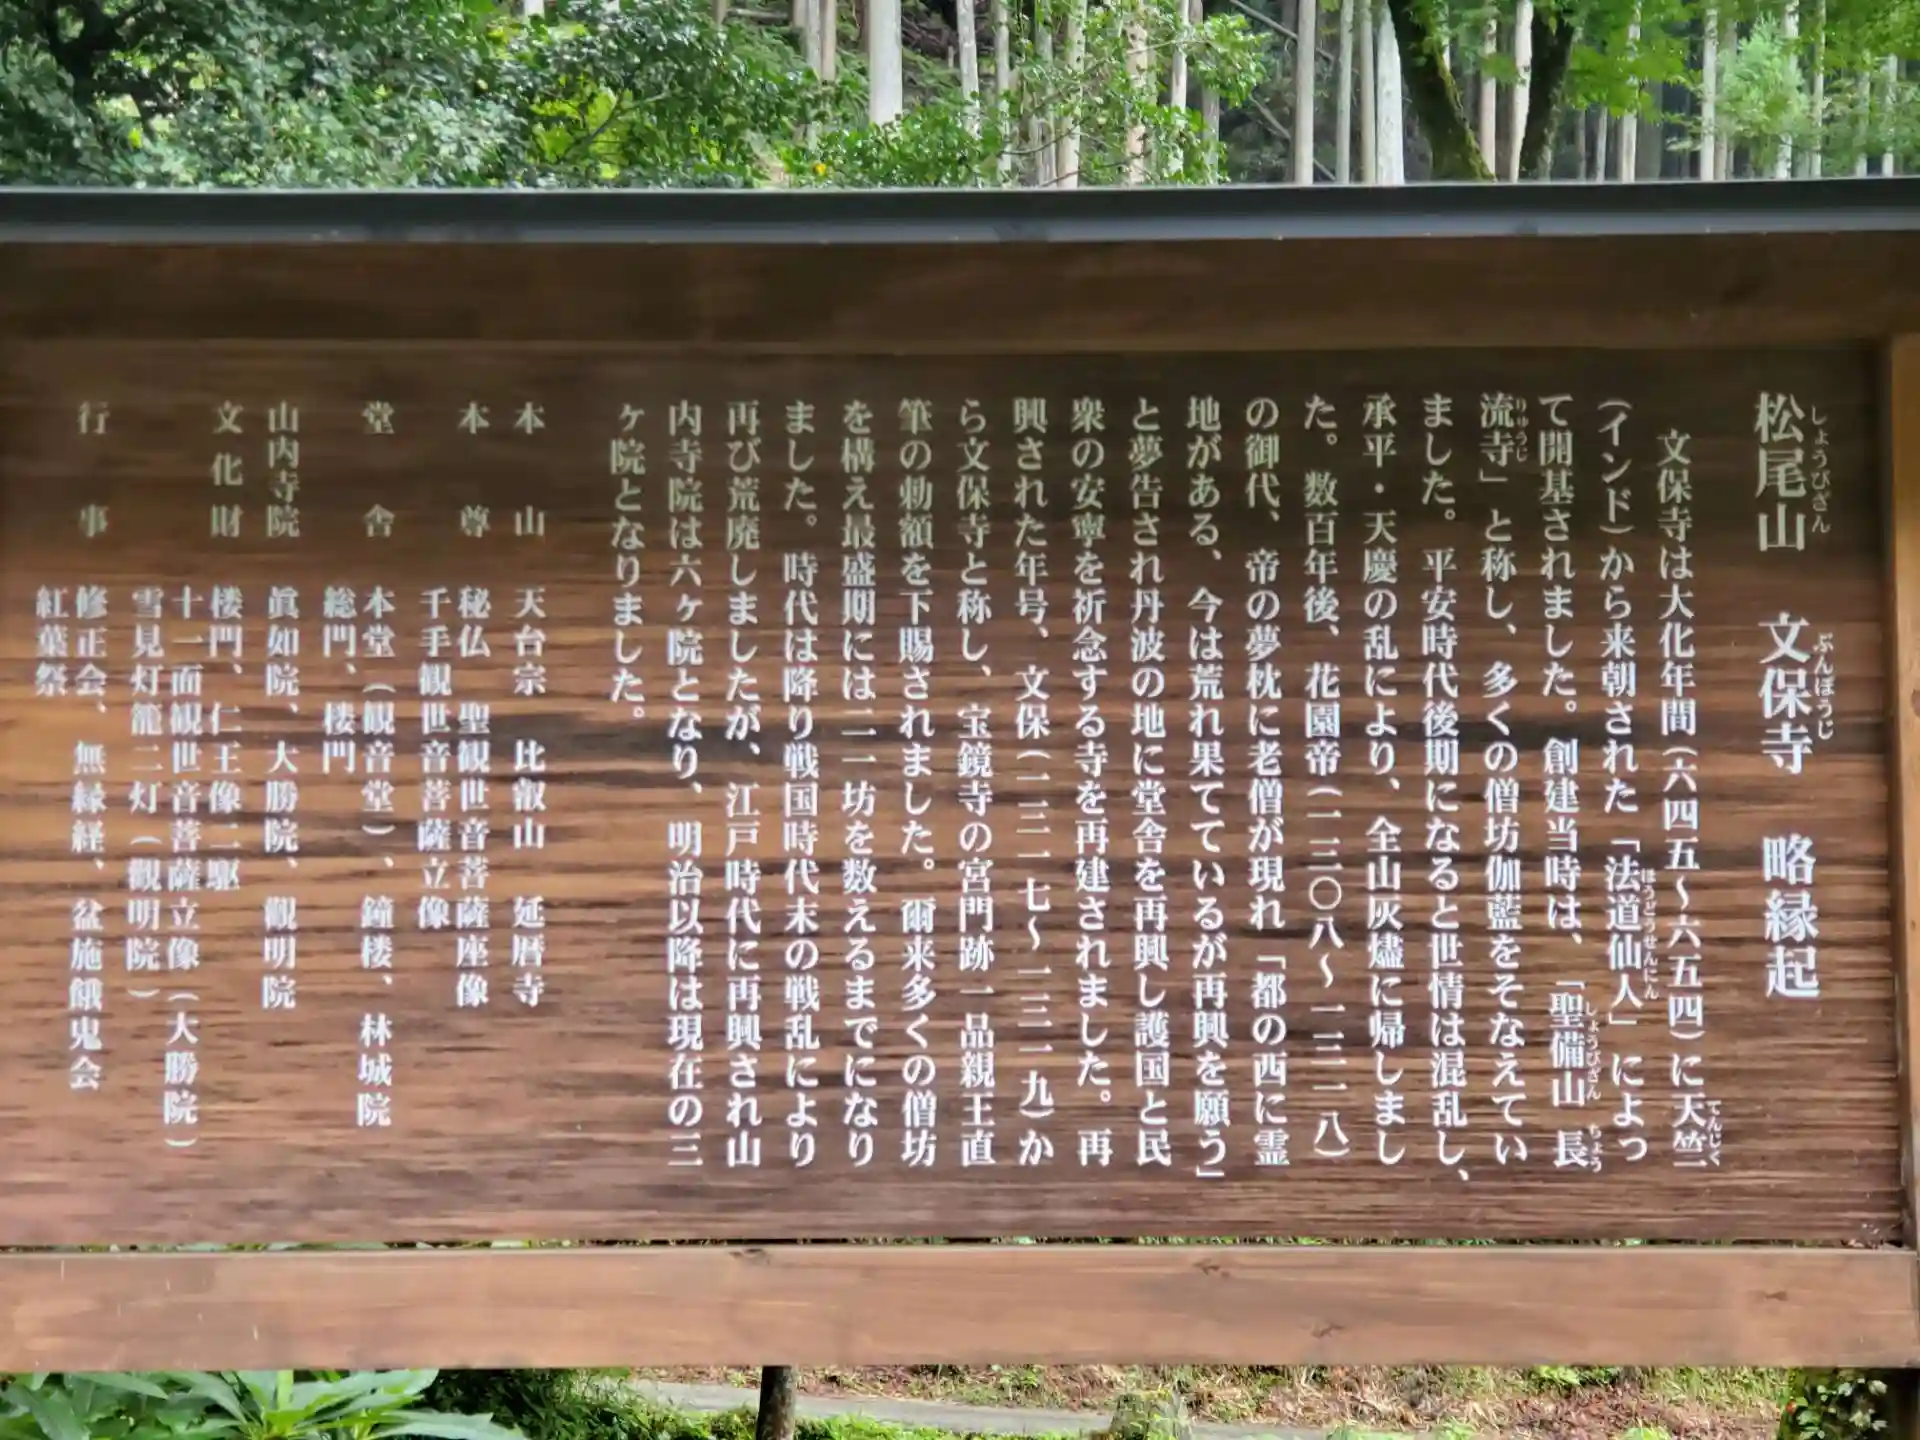 松尾山　文保寺　略縁起
しょうびざん　ぶんぽうじ
文保寺は大化年間(六四五〜六五四)に天竺
てんじく
(インド)から来朝された「法道仙人」によっ
ほうどうせんにん
て開基されました。創建当時は、「聖備山　長
しょうびざん　ちょう
流寺」と称し、多くの僧坊伽藍をそなえてい
りゅうじ
ました。平安時代後期になると世情は混乱し、
承平・天慶の乱により、全山灰燼に帰しまし
た。数百年後、花園帝(一三〇八〜一三一八)
の御代、帝の夢枕に老僧が現れ「都の西に霊
地がある、今は荒れ果てているが再興を願う」
と夢告され丹波の地に堂舎を再興し護国と民
衆の安寧を祈念する寺を再建されました。再
興された年号、文保(一三一七〜一三一九)か
ら文保寺と称し、宝鏡寺の宮門跡一品親王直
筆の勅額を下賜されました。爾来多くの僧坊
を構え最盛期には二一坊を数えるまでになり
ました。時代は降り戦国時代末の戦乱により
再び荒廃しましたが、江戸時代に再興され山
内寺院は六ヶ院となり、明治以降は現在の三
ヶ院となりました。
本　山　天台宗　比叡山　延暦寺
本　尊　秘仏　聖観世音菩薩座像
千手観世音菩薩立像
堂　舎　本堂(観音堂)、鐘楼、林城院
総門、楼門
山内寺院　眞如院、大勝院、觀明院
文化財　楼門、仁王像二躯
十一面観世音菩薩立像(大勝院)
雪見灯籠二灯(觀明院)
行　事　修正会、無縁経、盆施餓鬼会
紅葉祭